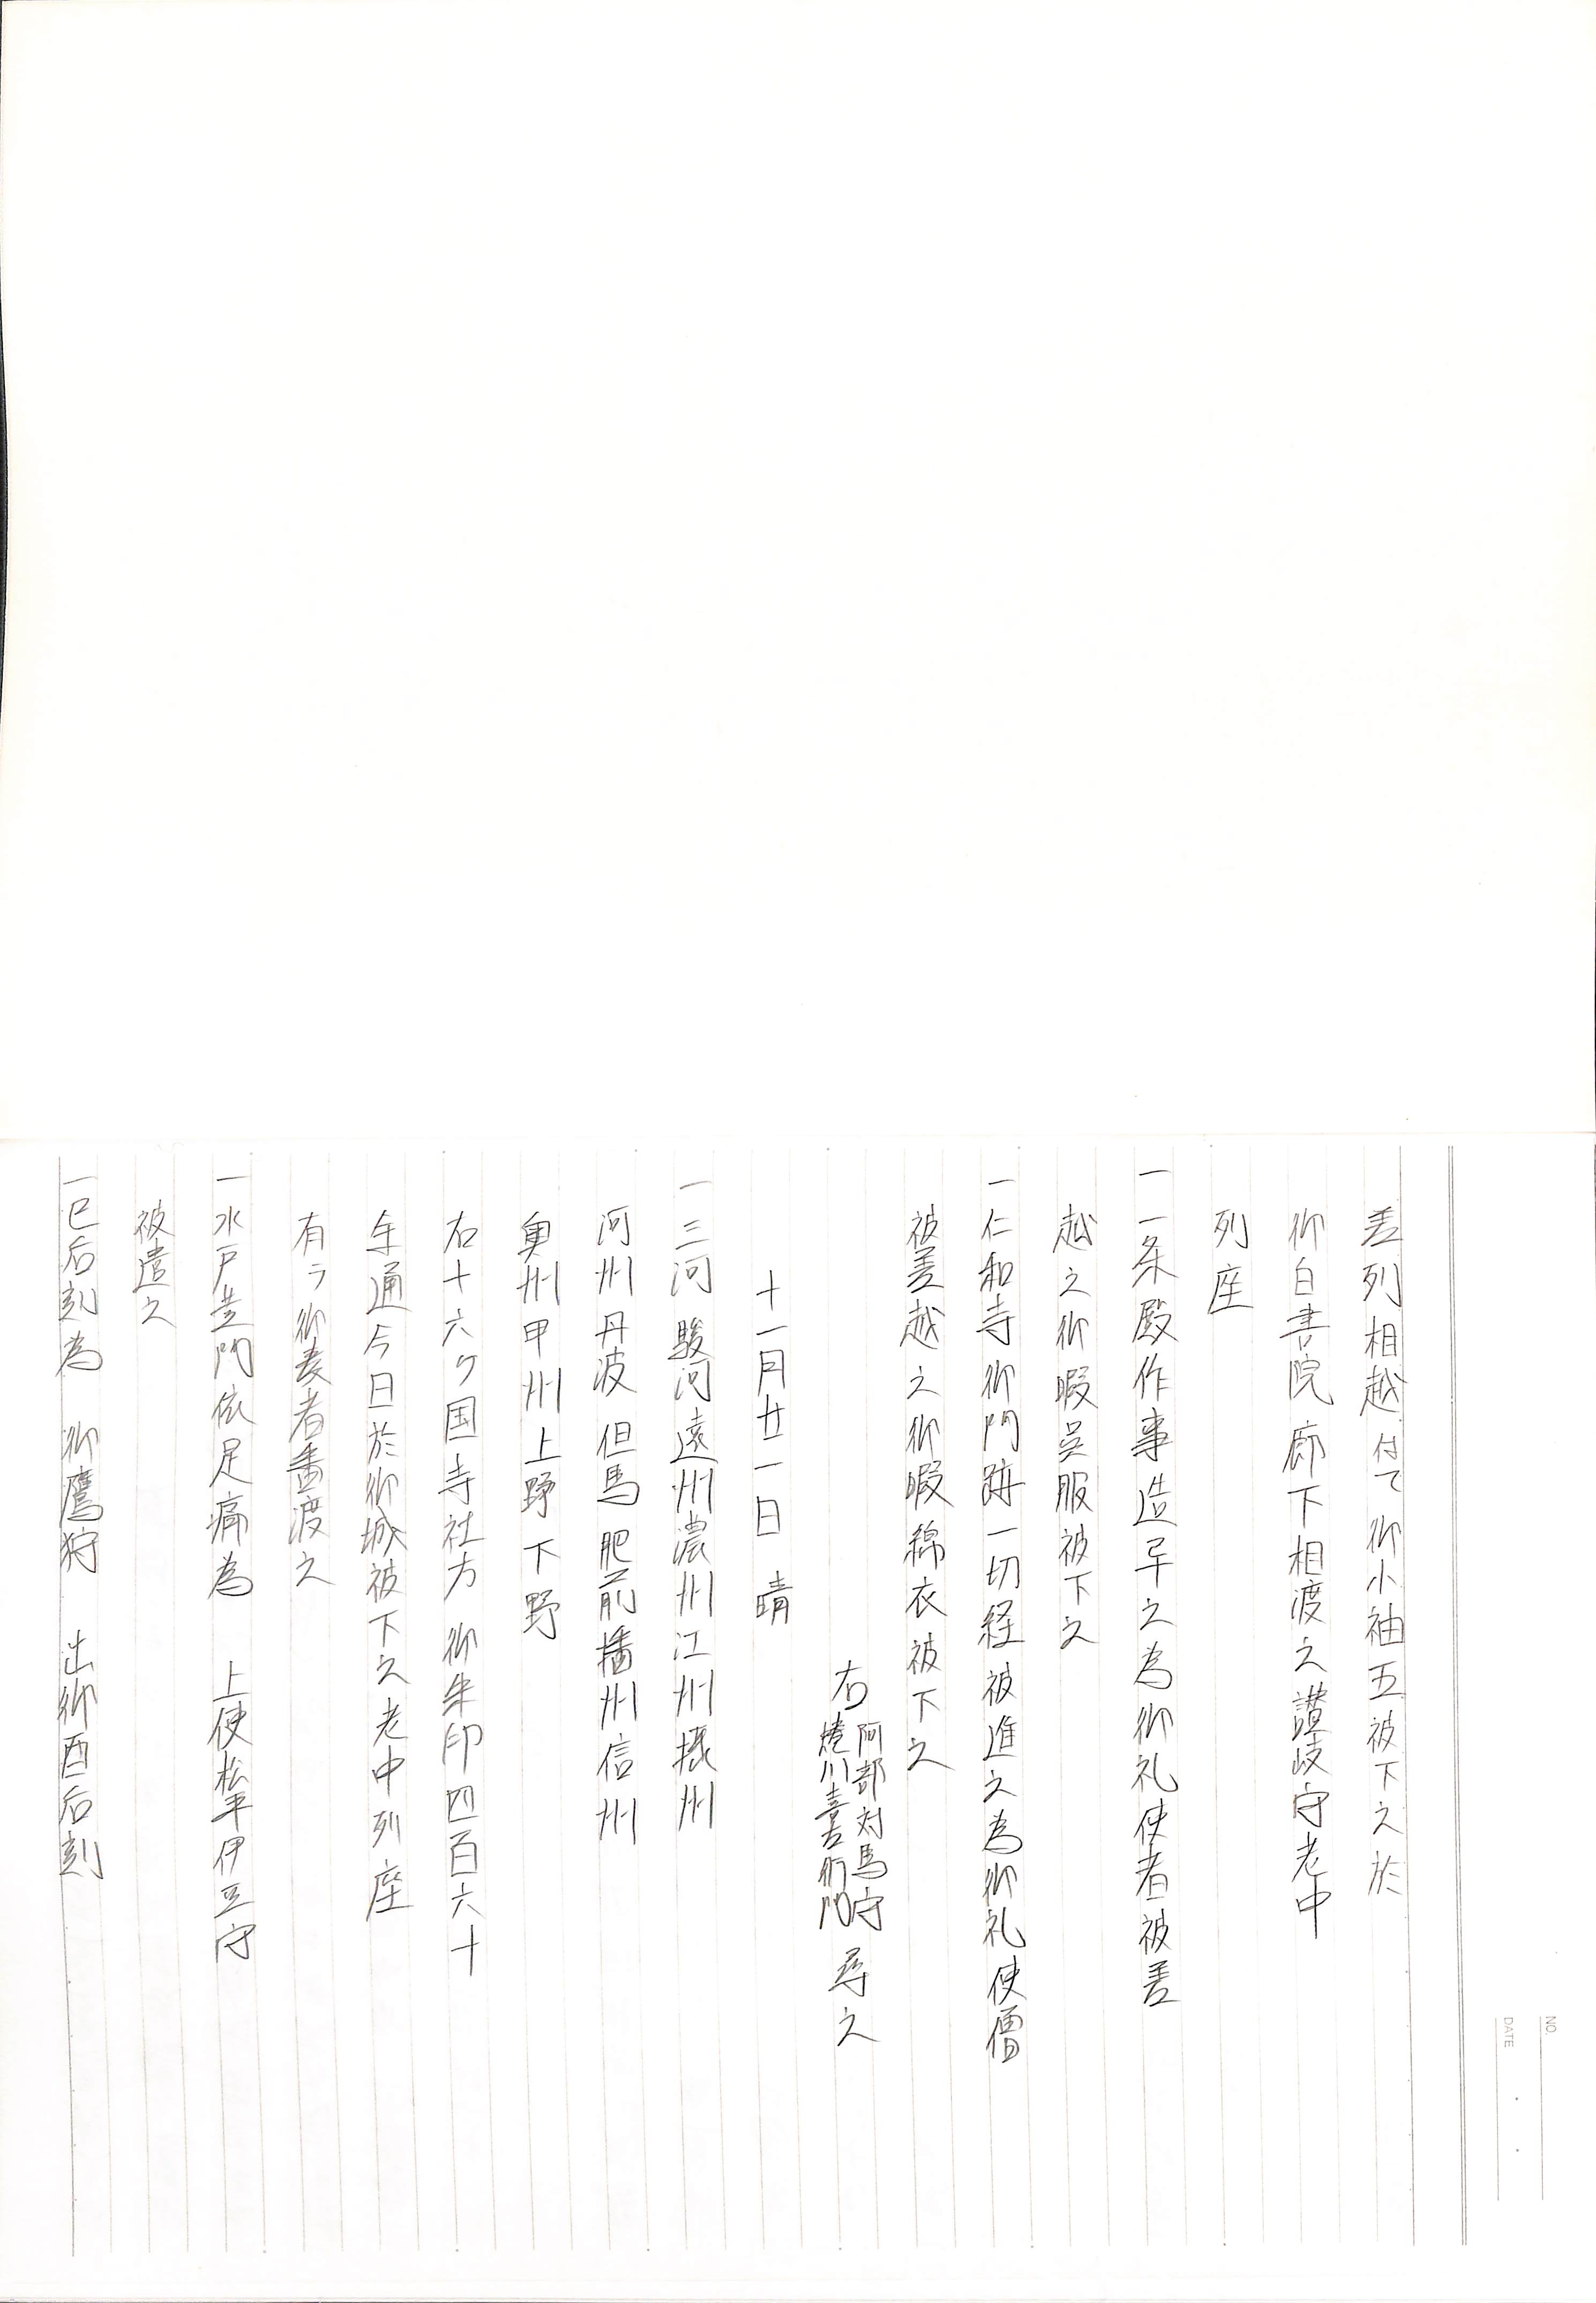 差列相越付て御小袖五被下之於
御白書院廊下相渡之讃岐守老中
列座
一一条殿作事造畢之為御礼使者被差
越之御暇呉服被下之
一仁和寺御門跡一切経被進之為御礼使僧
被差越之御暇綿衣被下之
右阿部対馬守
尋之
十一月廿一日 晴
一三河駿河遠州濃州江州摂州
河州丹波但馬肥前播州信州
奥州甲州上野下野
右十六ケ国寺社方御朱印四百六十
余通今日於御城被下之老中列座
有ラ御奏者番渡之
一水戸黄門依足痛為 上使松平伊豆守
被遣之
一巳后刻為 御鷹狩 出御酉后刻
NO.
DATE